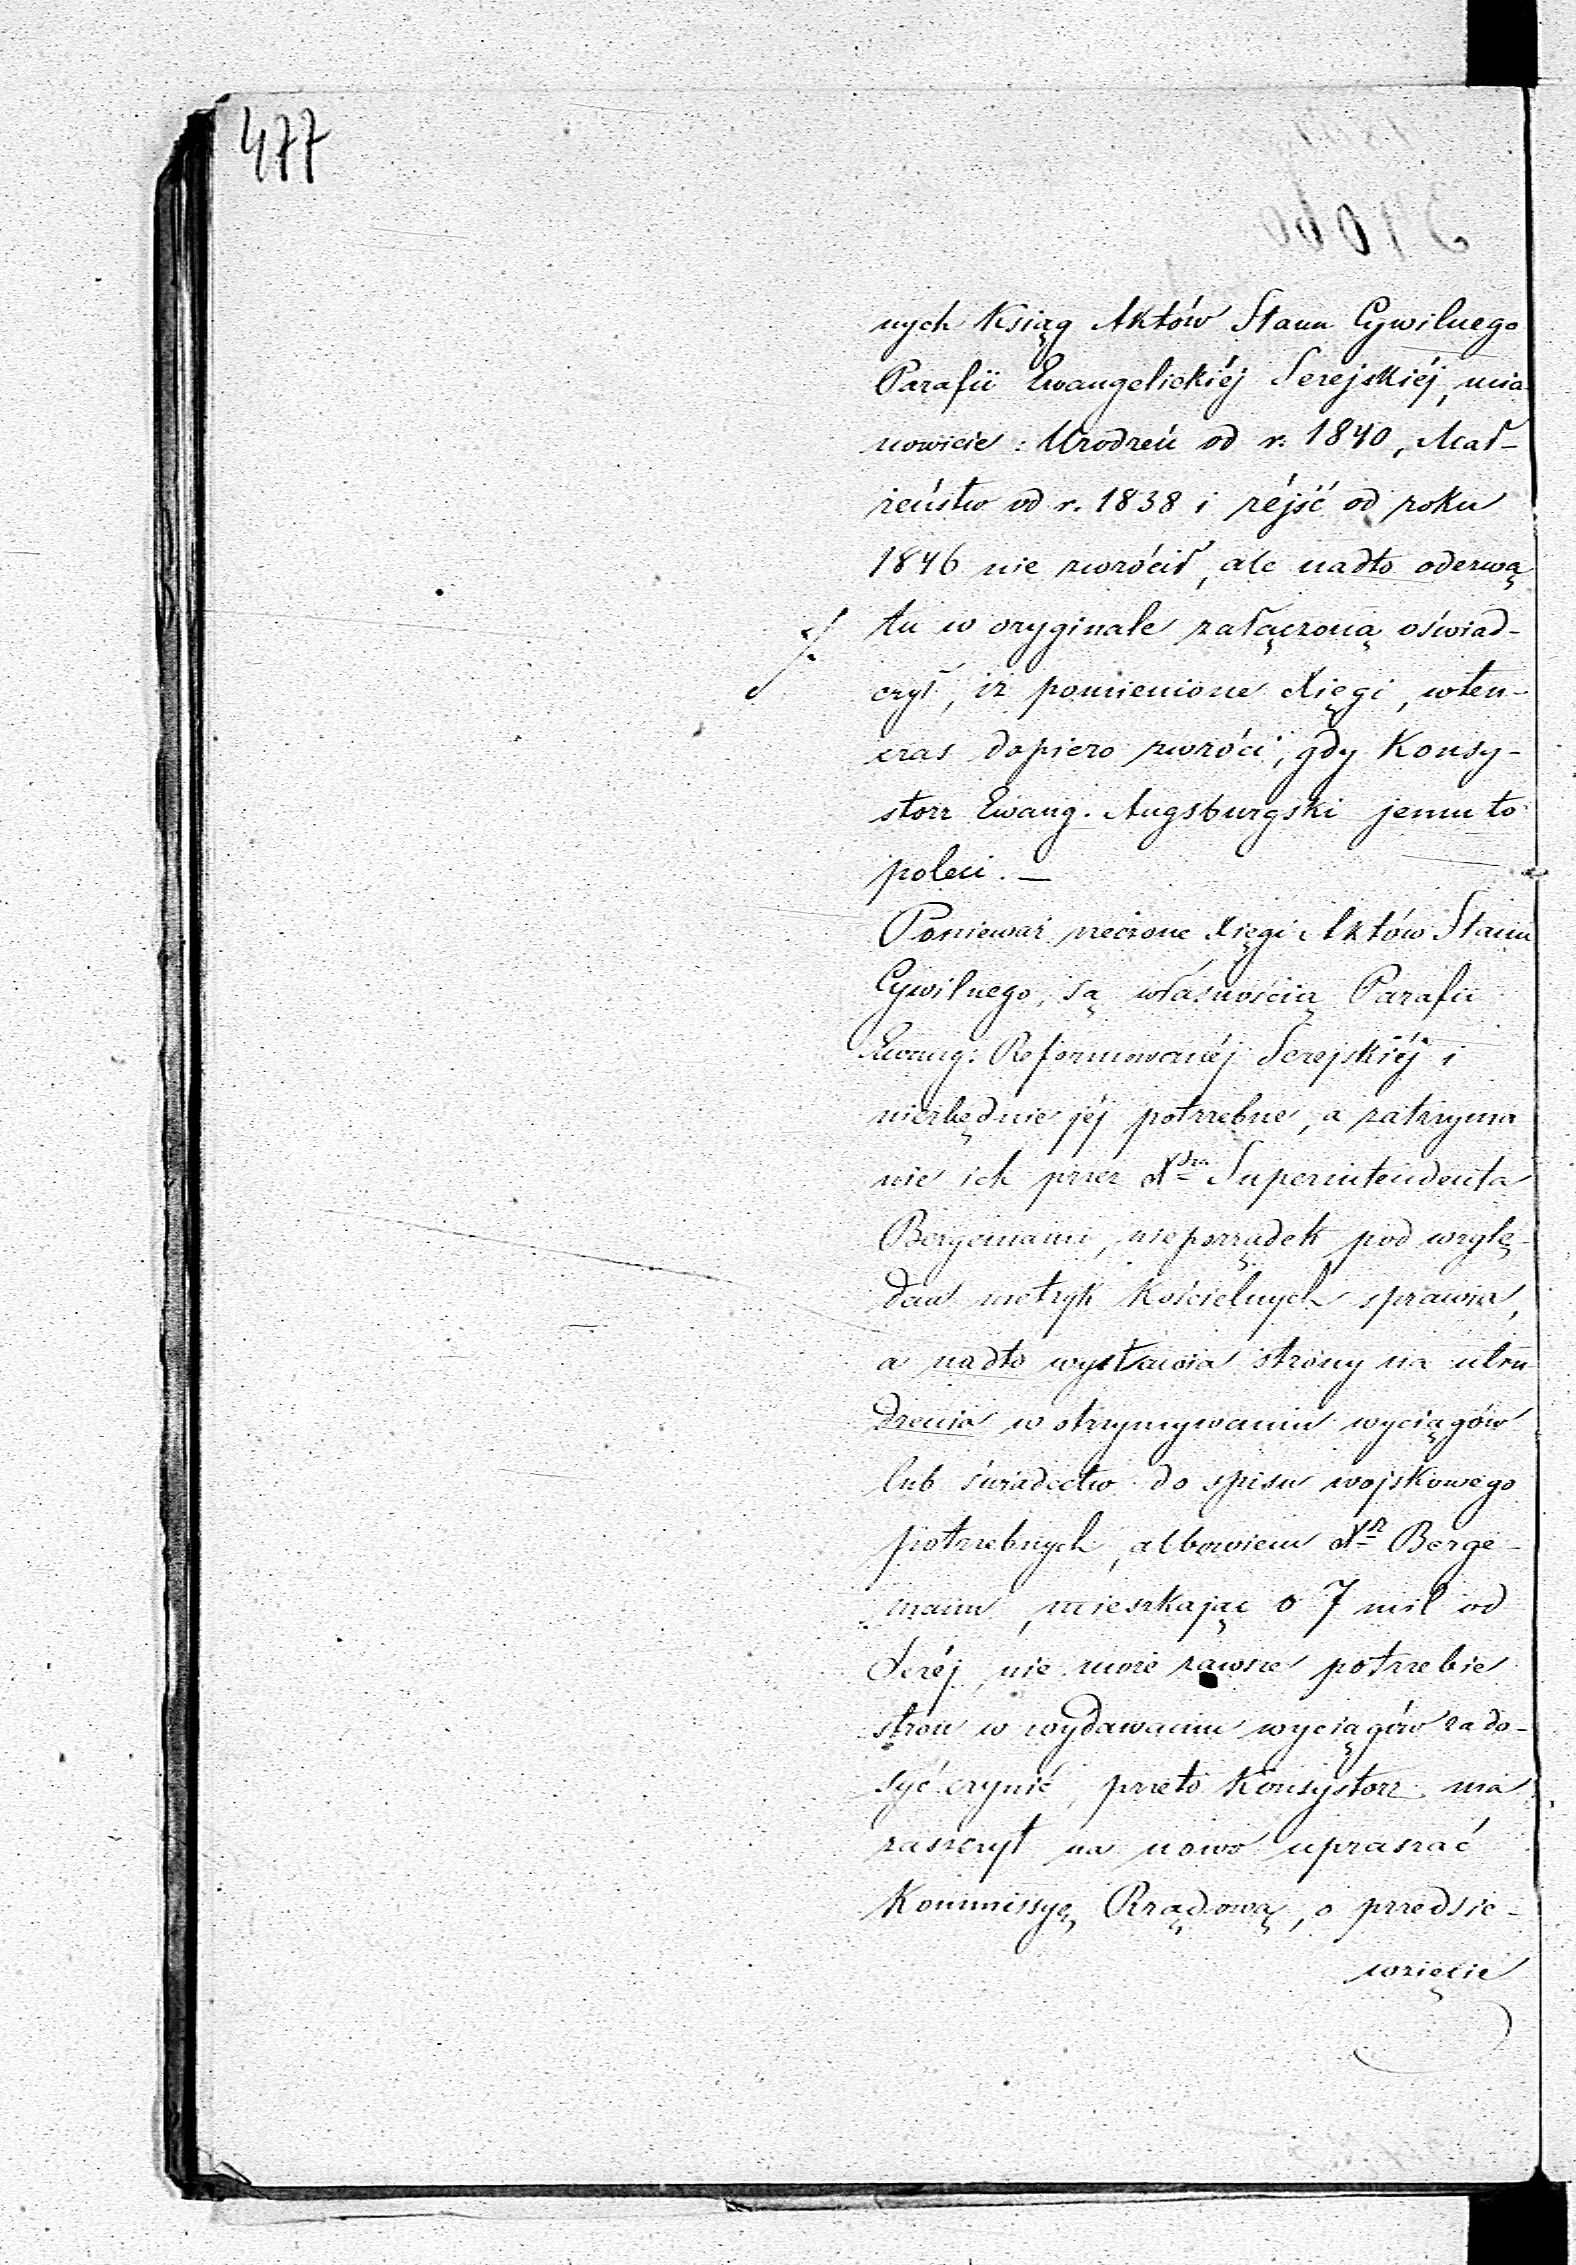 477
nych Ksiąg Aktów Stanu Cywilnego
Parafii Ewangelickiéj Serejskiéj, mia
nowicie: Urodzeń od r. 1840, Mał-
żeństw od r. 1838 i zéjść od roku
1846 nie zwrócił, ale nadto odezwą
tu w oryginale załączoną oświad-
czył, iż pomienione Xięgi, wten-
czas dopiero zwróci, gdy Konsy-
storz Ewang. Augsburgski jemu to
poleci. —
Ponieważ rzeczone Xięgi Aktów Stanu
Cywilnego, są własnością Parafii
Ewang: Reformowanéj Serejskiéj i
niezbędnie jéj potrzebne, a zatrzyma
nie ich przez Xdza Superintendenta
Bergemann, nieporządek pod wzglę-
dem metryk Kościelnych sprawia,
a nadto wystawia strony na utru
dzenia w otrzymywaniu wyciągów
lub świadectw do spisu wojskowego
potrzebnych, albowiem Xdz Berge-
mann, mieszkając o 7 mil od
Seréj, nie może zawsze potrzebie
stron w wydawaniu wyciągów zado-
syć czynić, przeto Konsystorz ma
zaszczyt na nowo upraszać
Kommissyę Rządową, o przedsię-
wzięcie